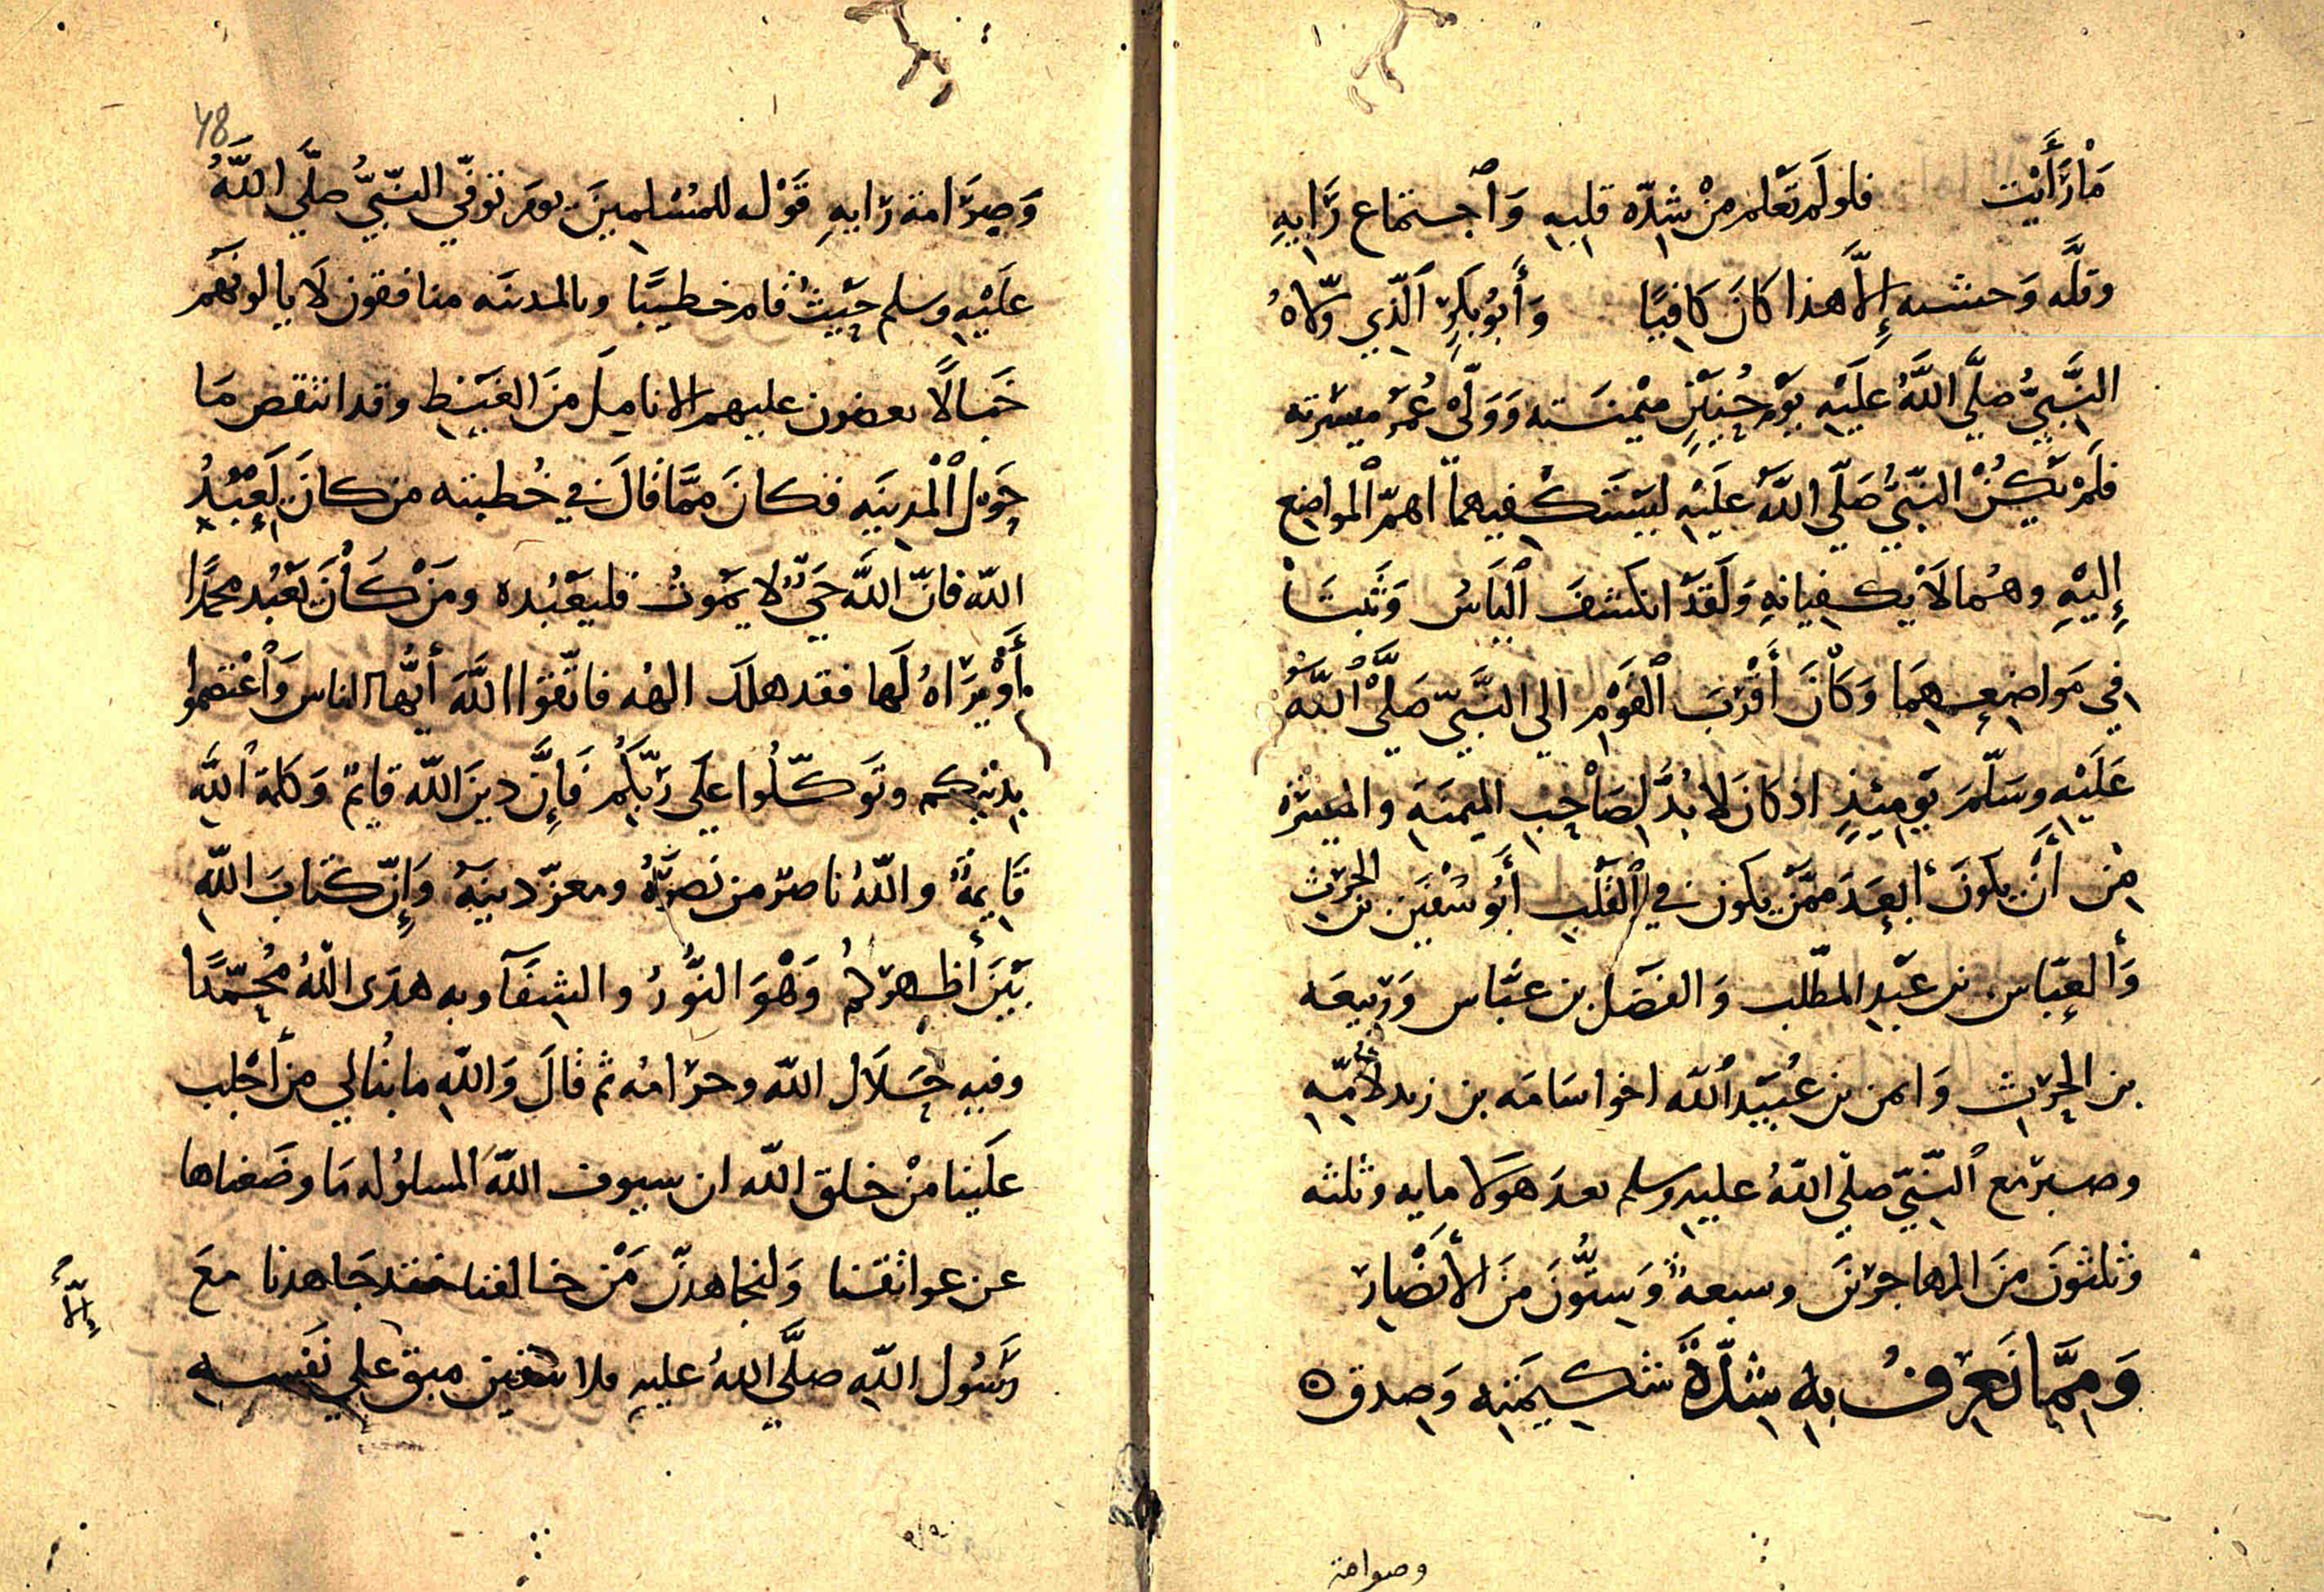 مَا رَأَيْت فلو لَم تَعْلم مِنْ شِدّة قلبِهِ وَاجتماع رَايهِ
وقلَّه وَحشـه إِلَّا هذا كانَ كَافِيًا وَأَبُو بَكرٍ الَّذِي وَلّاهُ
النَّبيُّ صلَّي اللَّهُ علَيْهِ يَوْمَ حُنَيْنٍ ميْمنَـته وَوَلّي عُمَرَ ميسَرته
فلَمْ يَكُنْ النّبيُّ صَلَّي اللَّهُ علَيْهِ ليَسْتكْفيهما اهمّ المواضِع
إِليْهِ وهُما لَا يكفِيانِهِ وَلَقَدْ انكشفَ الْبَاسُ وَثَبتَا
فِي مَواضِعِهِمَا وَكَانَ أَقْرَبَ الْقَوْمِ الي النَّبيّ صَلَّي اللَّهُ
عَلَيْهِ وسَلَّمَ يَوْمِئذٍ اذ كانَ لا بُدَّ لِصَاحِبِ الميمنَهِ والميسَرَة
مِن أَنْ يكونَ أبعَدَ ممَّنْ يكون في الْقَلْبِ أَبُو سُفْيَن بن الحرث
وَالعَبّاس بن عَبْدِ المطّلب وَالفَضْل بن عبّاس وَرَبِيعَه
بن الحرِث وَايمن بن عُبَيْدالله اخو اسَامَه بن زيد لأُمِّهِ
وصبر مع النّبيّ صلّي اللهُ عليهِ وسلم بعدَ هَولَا مايه وثلثه
وثلثونَ مِنَ المهاجرينَ وسبعةٌ وَسِتُّونَ مِنَ الأَنْصَارِ
وَمِمَّا نَعرِفُ بِهِ شِدَّةَ شَكِيمَتِهِ وَصِدقِ ٥
وصرامة
48
وَصِرَامة رَايهِ قَوْله للمُسْلِمينَ يومَ توفّي النّبيُّ صلَّي اللَّهُ
علَيْهِ وسلم حيْثُ قامَ خطيبًا وبالمدينَه منافقون لَا يالونهم
خَبالًا يعضون عليهم الاناملَ مِنَ الغَيْظِ وقد انتقص مَا
حَوْل الْمدِينَهِ فكانَ ممَّا قالَ في خُطبته من كانَ يَعْبُدُ
اللهَ فانّ اللَّهَ حَيٌّ لا يَمُوتُ فليَعْبُده ومَنْ كَانَ يَعْبُد محمدًا
أَوْ يَرَاهُ لَها فقد هلكَ الهُه فاتّقوا اللَّهَ أيُّها الناس وَاعْتصموا
بِدِيْنِكم وتَوَكّلُوا علَي رَبّكُمْ فَإِنَّ دِينَ اللَّه قايمٌ وَكلمة اللَّهِ
قَايِمةٌ واللَّهُ ناصرٌ من نَصرَهُ ومعزّ دينَهُ وَإِنّ كتابَ اللَّهِ
بَيْنَ أَظهركُم وَهْوَ النُّورُ والشِفَآ وبه هدَى اللَّهُ مُحمّدًا
وفيهِ حَلَال اللَّه وحرَامُه ثم قالَ وَاللَّهِ ما نُبالي مَن أَجْلب
علَينا مِنْ خلقِ اللَّه ان سيوف اللَّه المسلوُله مَا وضَعناها
عن عواتقنا وَلنجاهدنّ مَنْ خالفنا فقد جَاهدنا معَ
رَسُول اللَّهِ صلَّي اللَّهُ عليهِ فلا يبقين مبقٍ علي نَفسِه
إِلَّا